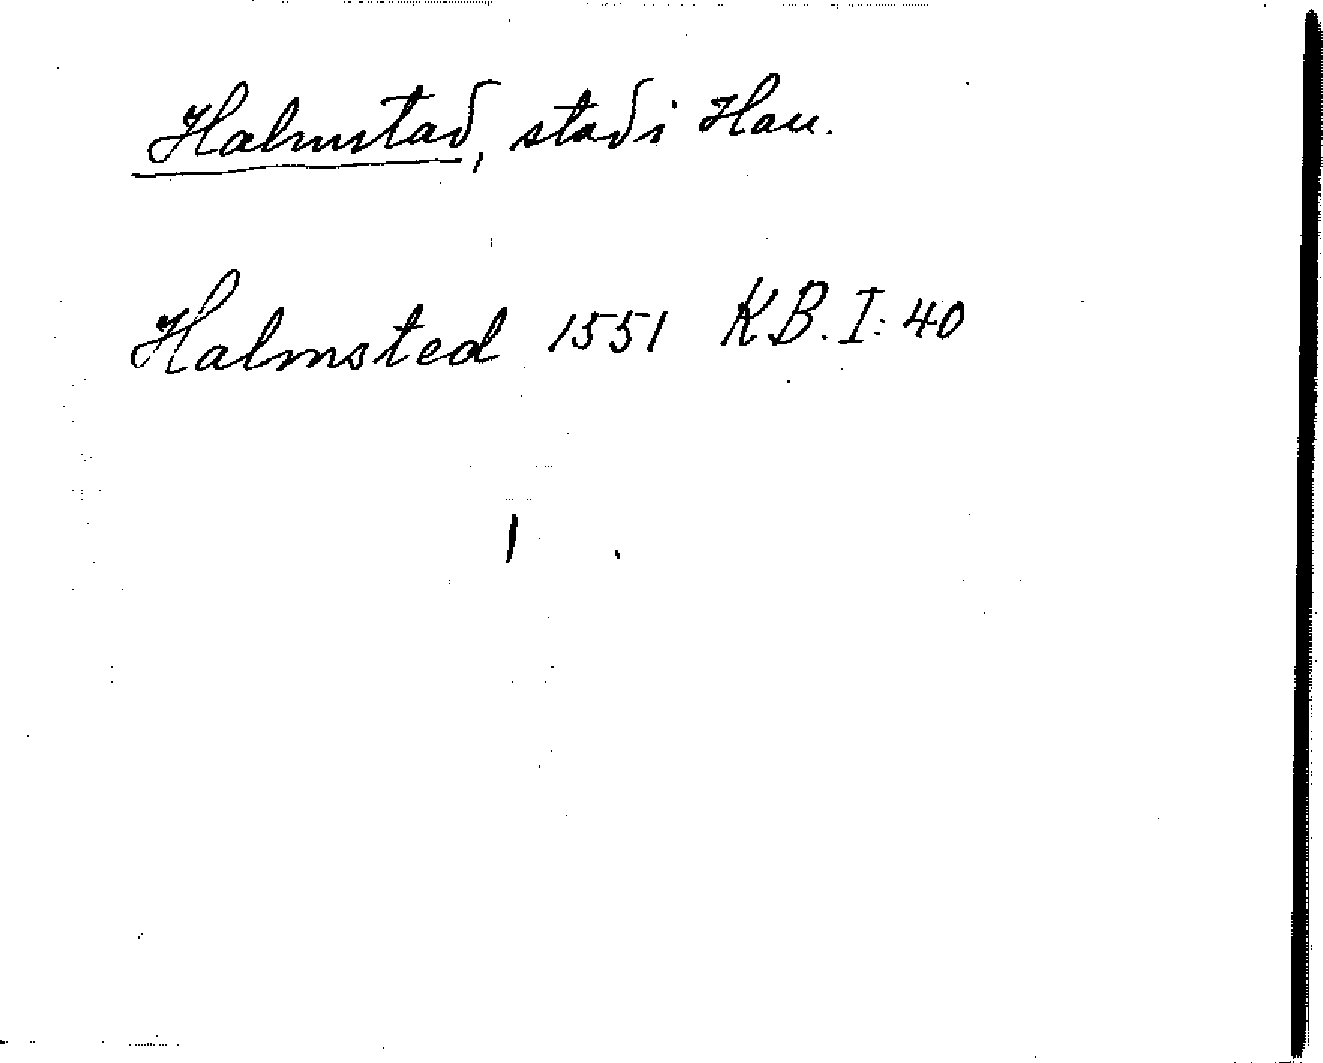 Halmstad, stad i Hall.
Halmsted 1551 KB. I: 40